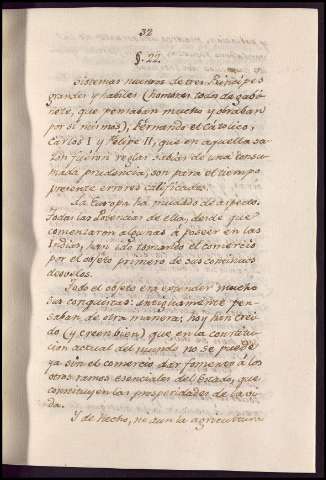 32
§. 22.
Sistemas nuestros de tres Principes
grandes y habiles (hombres todos de gabi-
nete, que pensaban mucho y obraban
por si mismos), Fernando el Catolico,
Carlos I y Felipe II, que en aquella sa-
zon fueron reglas sabias de una consu-
mada prudencia, son para el tiempo
presente errores calificados.
La Europa ha mudado de aspecto.
Todas las Potencias de ella, desde que
comenzaron algunas á poseer en las
Indias, han ido tomando el comercio
por el objeto primero de sus continuos
desvelos.
Todo el objeto era extender mucho
sus conquistas: antiguamente pen-
saban de otra manera; hoy han crei-
do (y creen bien) que en la constitu-
cion actual del mundo no se puede
ya sin el comercio dar fomento á los
otros ramos esenciales del Estado, que
constituyen las prosperidades de la vi-
da.
Y de hecho, no aun la agricultura